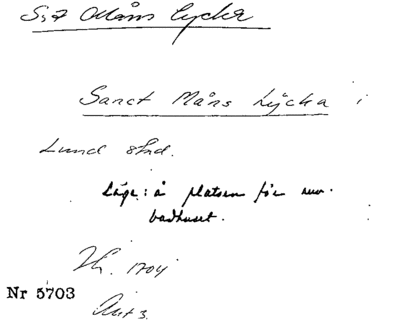 S:t Måns lycka
Sanct Måns Lycka i
Lund stad.
Läge: å platsen för nuv.
badhuset.
1704
Nr 5703